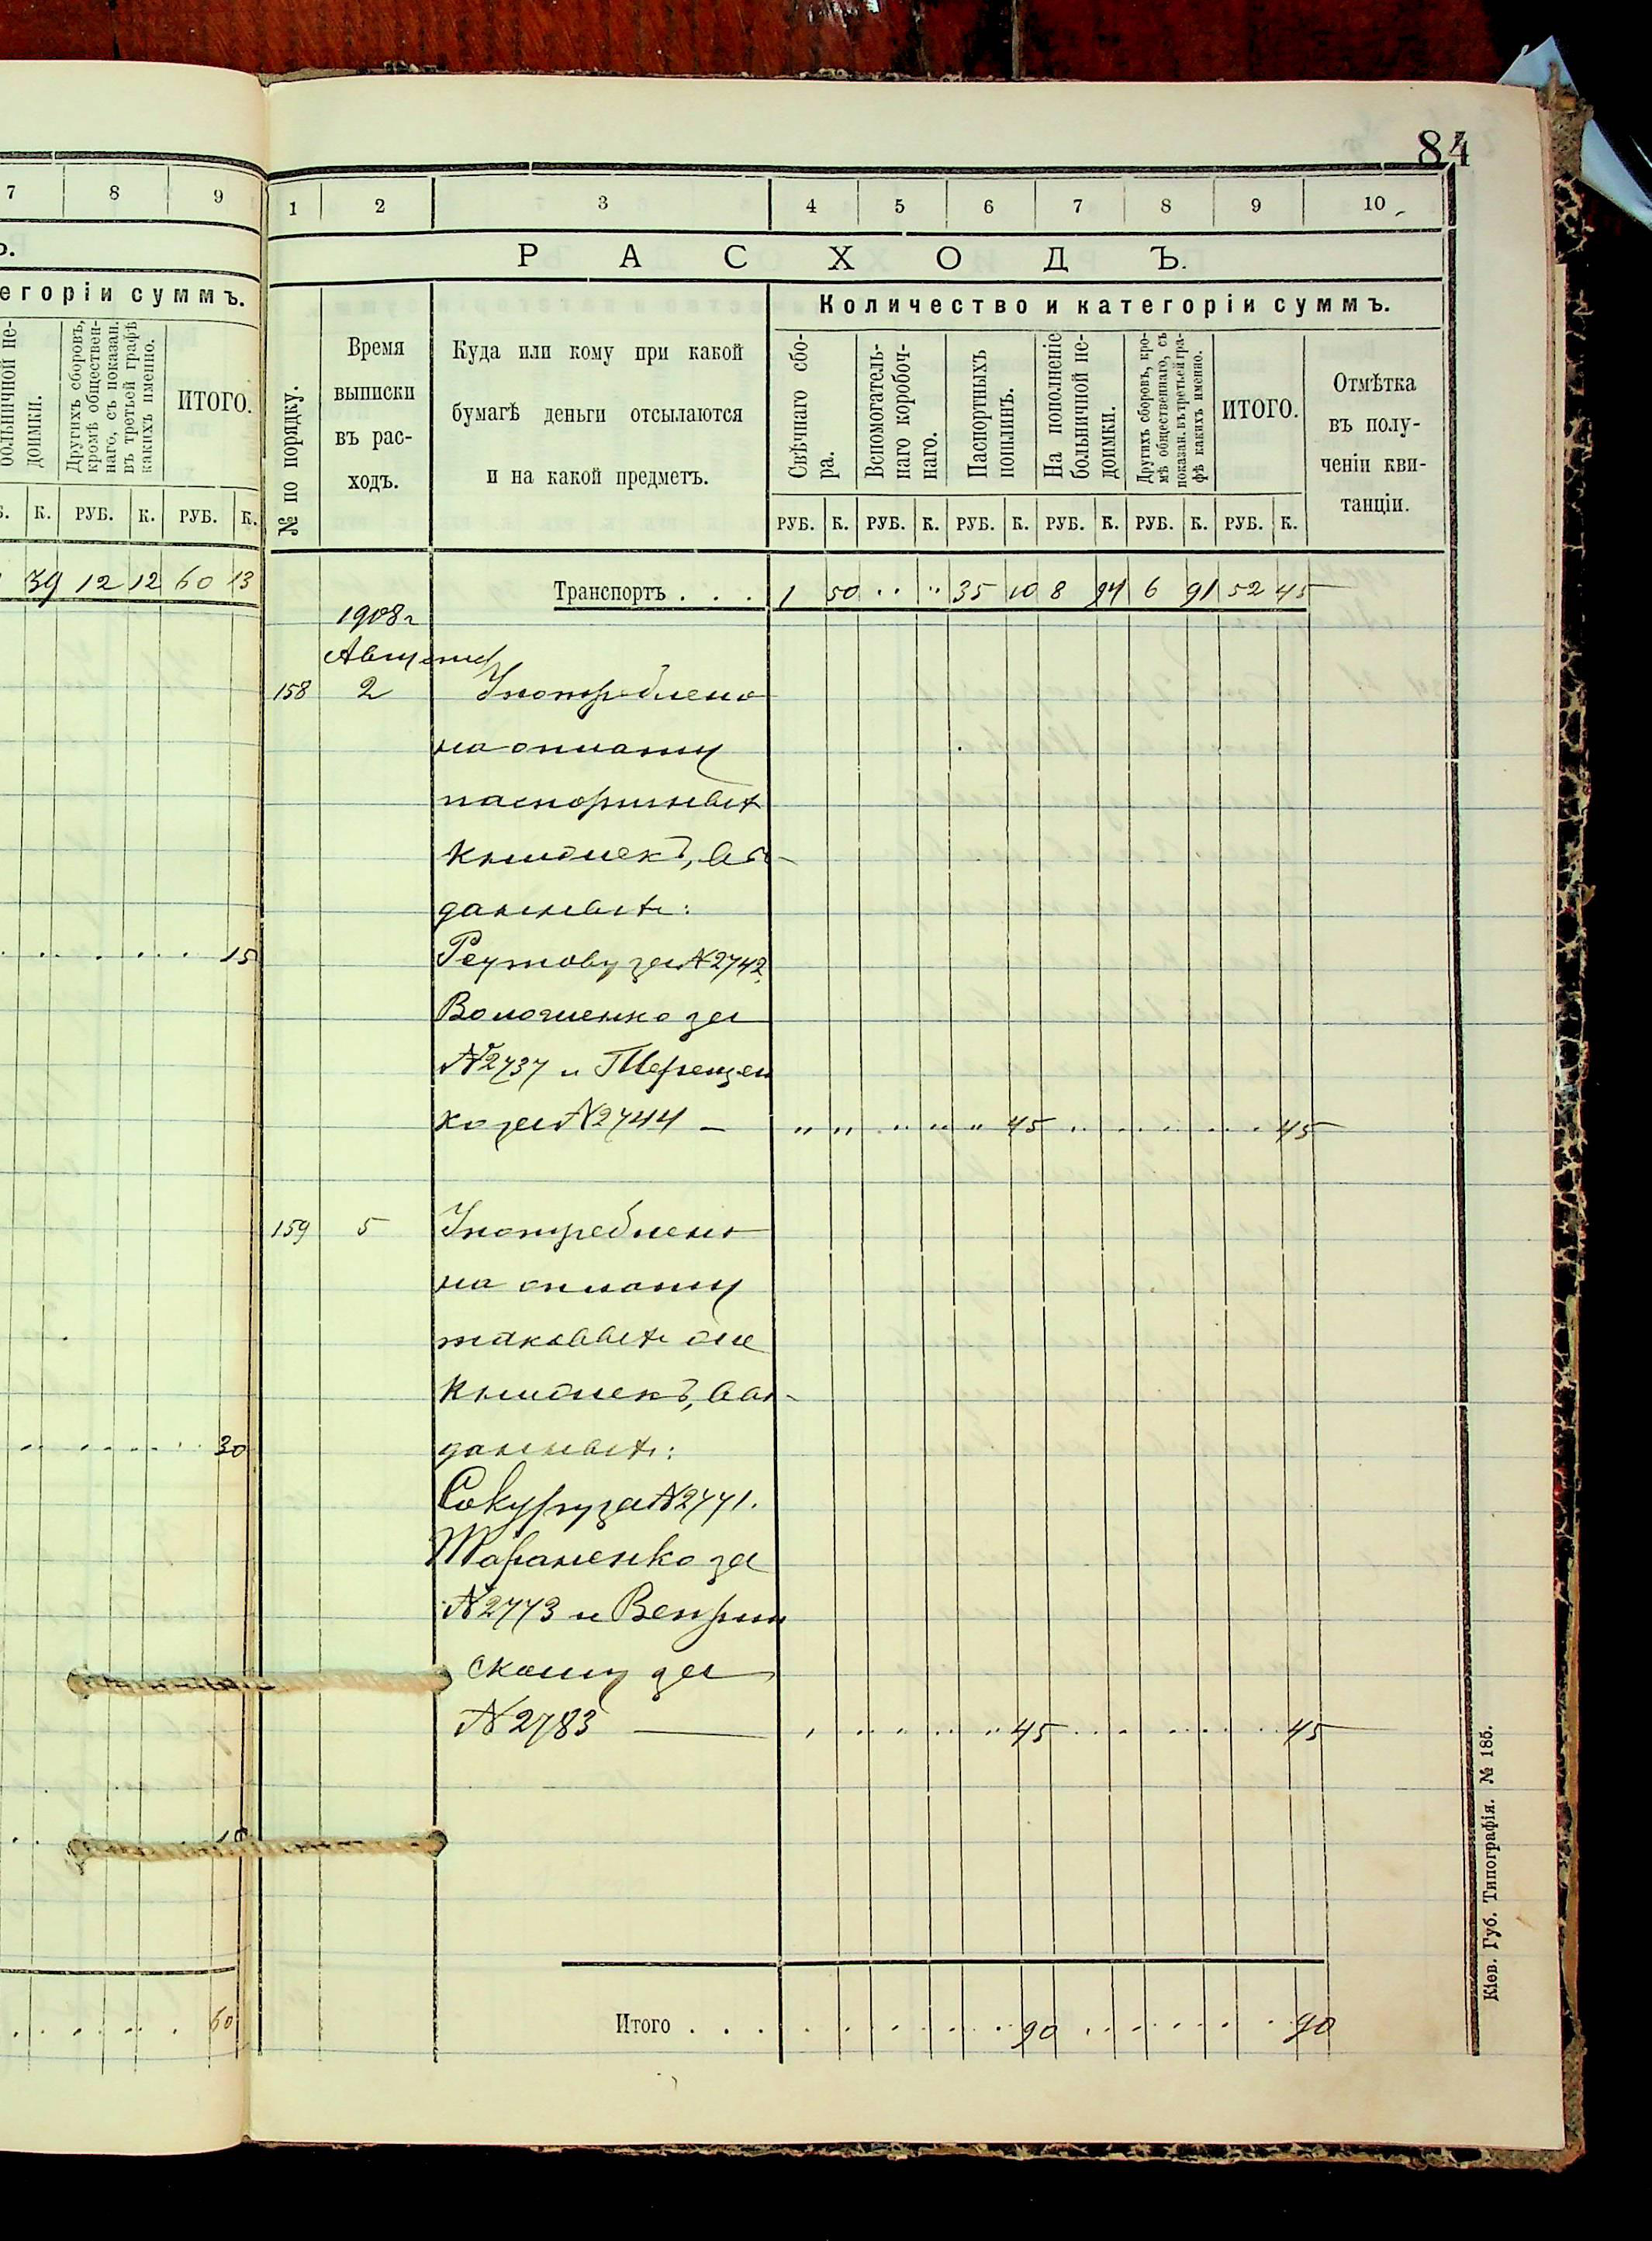 84
7 8 9
егоріи суммъ.
больничной не-
доимки.
Другихъ сборовъ,
кромѣ обществен-
наго, съ показан.
въ третьей графѣ
какихъ именно.
ИТОГО.
К. РУБ. К. РУБ. К.
39 12 12 60 13
15
30
60
1 2 3 4 5 6 7 8 9 10
РАСХОДЪ.
№ по порядку.
Время
выписки
въ рас-
ходъ.
Куда или кому при какой
бумагѣ деньги отсылаются
и на какой предметъ.
Количество и категоріи суммъ.
Свѣчнаго сбо-
ра.
Вспомогатель-
наго коробоч-
наго.
Паспортныхъ
пошлинъ.
На пополненіе
больничной не-
доимки.
Другихъ сборовъ, кро-
мѣ общественнаго, съ
показан. въ третьей гра-
фѣ какихъ именно.
ИТОГО.
Отмѣтка
въ полу-
ченіи кви-
танціи.
РУБ. К. РУБ. К. РУБ. К. РУБ. К. РУБ. К. РУБ. К.
Транспортъ . . . 1 50 " " 35 10 8 94 6 91 52 45
1908 г
Августа
158 2 Употреблено
на оплату
паспортныхъ
книжекъ, вы-
данныхъ:
Реутову за №2742,
Волошенко за
№2737 и Терещен
ко за №2744 — " " " " " 45 " " " " " 45
159 5 Употреблено
на оплату
таковыхъ же
книжекъ, вы-
данныхъ:
Сокуру за №2771.
Тараненко за
№2773 и Венгрин
скому за
№2783 — " " " " " 45 " " " " " 45
Итого . . . 90 90
Кіев. Губ. Типографія. № 185.